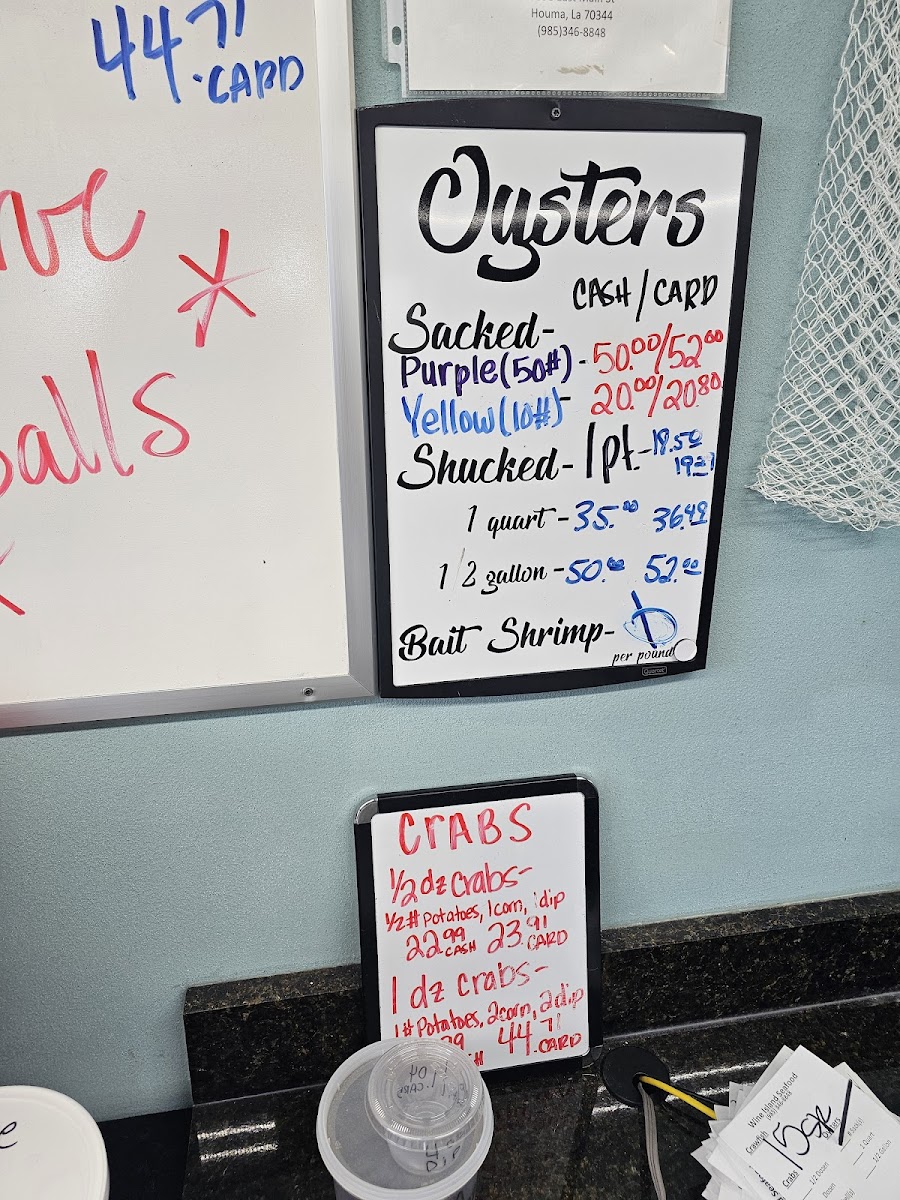 44.71
CARD
*
alls
Houma, La 70344
(985)346-8848
Oysters
CASH / CARD
Sacked-
Purple (50#) - 50.00/52.00
Yellow (10#) - 20.00/20.80
Shucked - 1pt. - 18.50
1 quart - 35.00 36.49
1/2 gallon - 50.00 52.00
Bait Shrimp-
per pound
Quartet
CRABS
1/2 dz crabs-
1/2# potatoes, 1 corn, 1 dip
22.99 CASH 23.91 CARD
1 dz crabs-
1# potatoes, 2 corn, 2 dip
44.71 CARD
DIP
Wine Island Seafood
(985) 346-8848
Crawfish
Crabs
1/2 Dozen
Dozen
1 Quart
1/2 Gallon